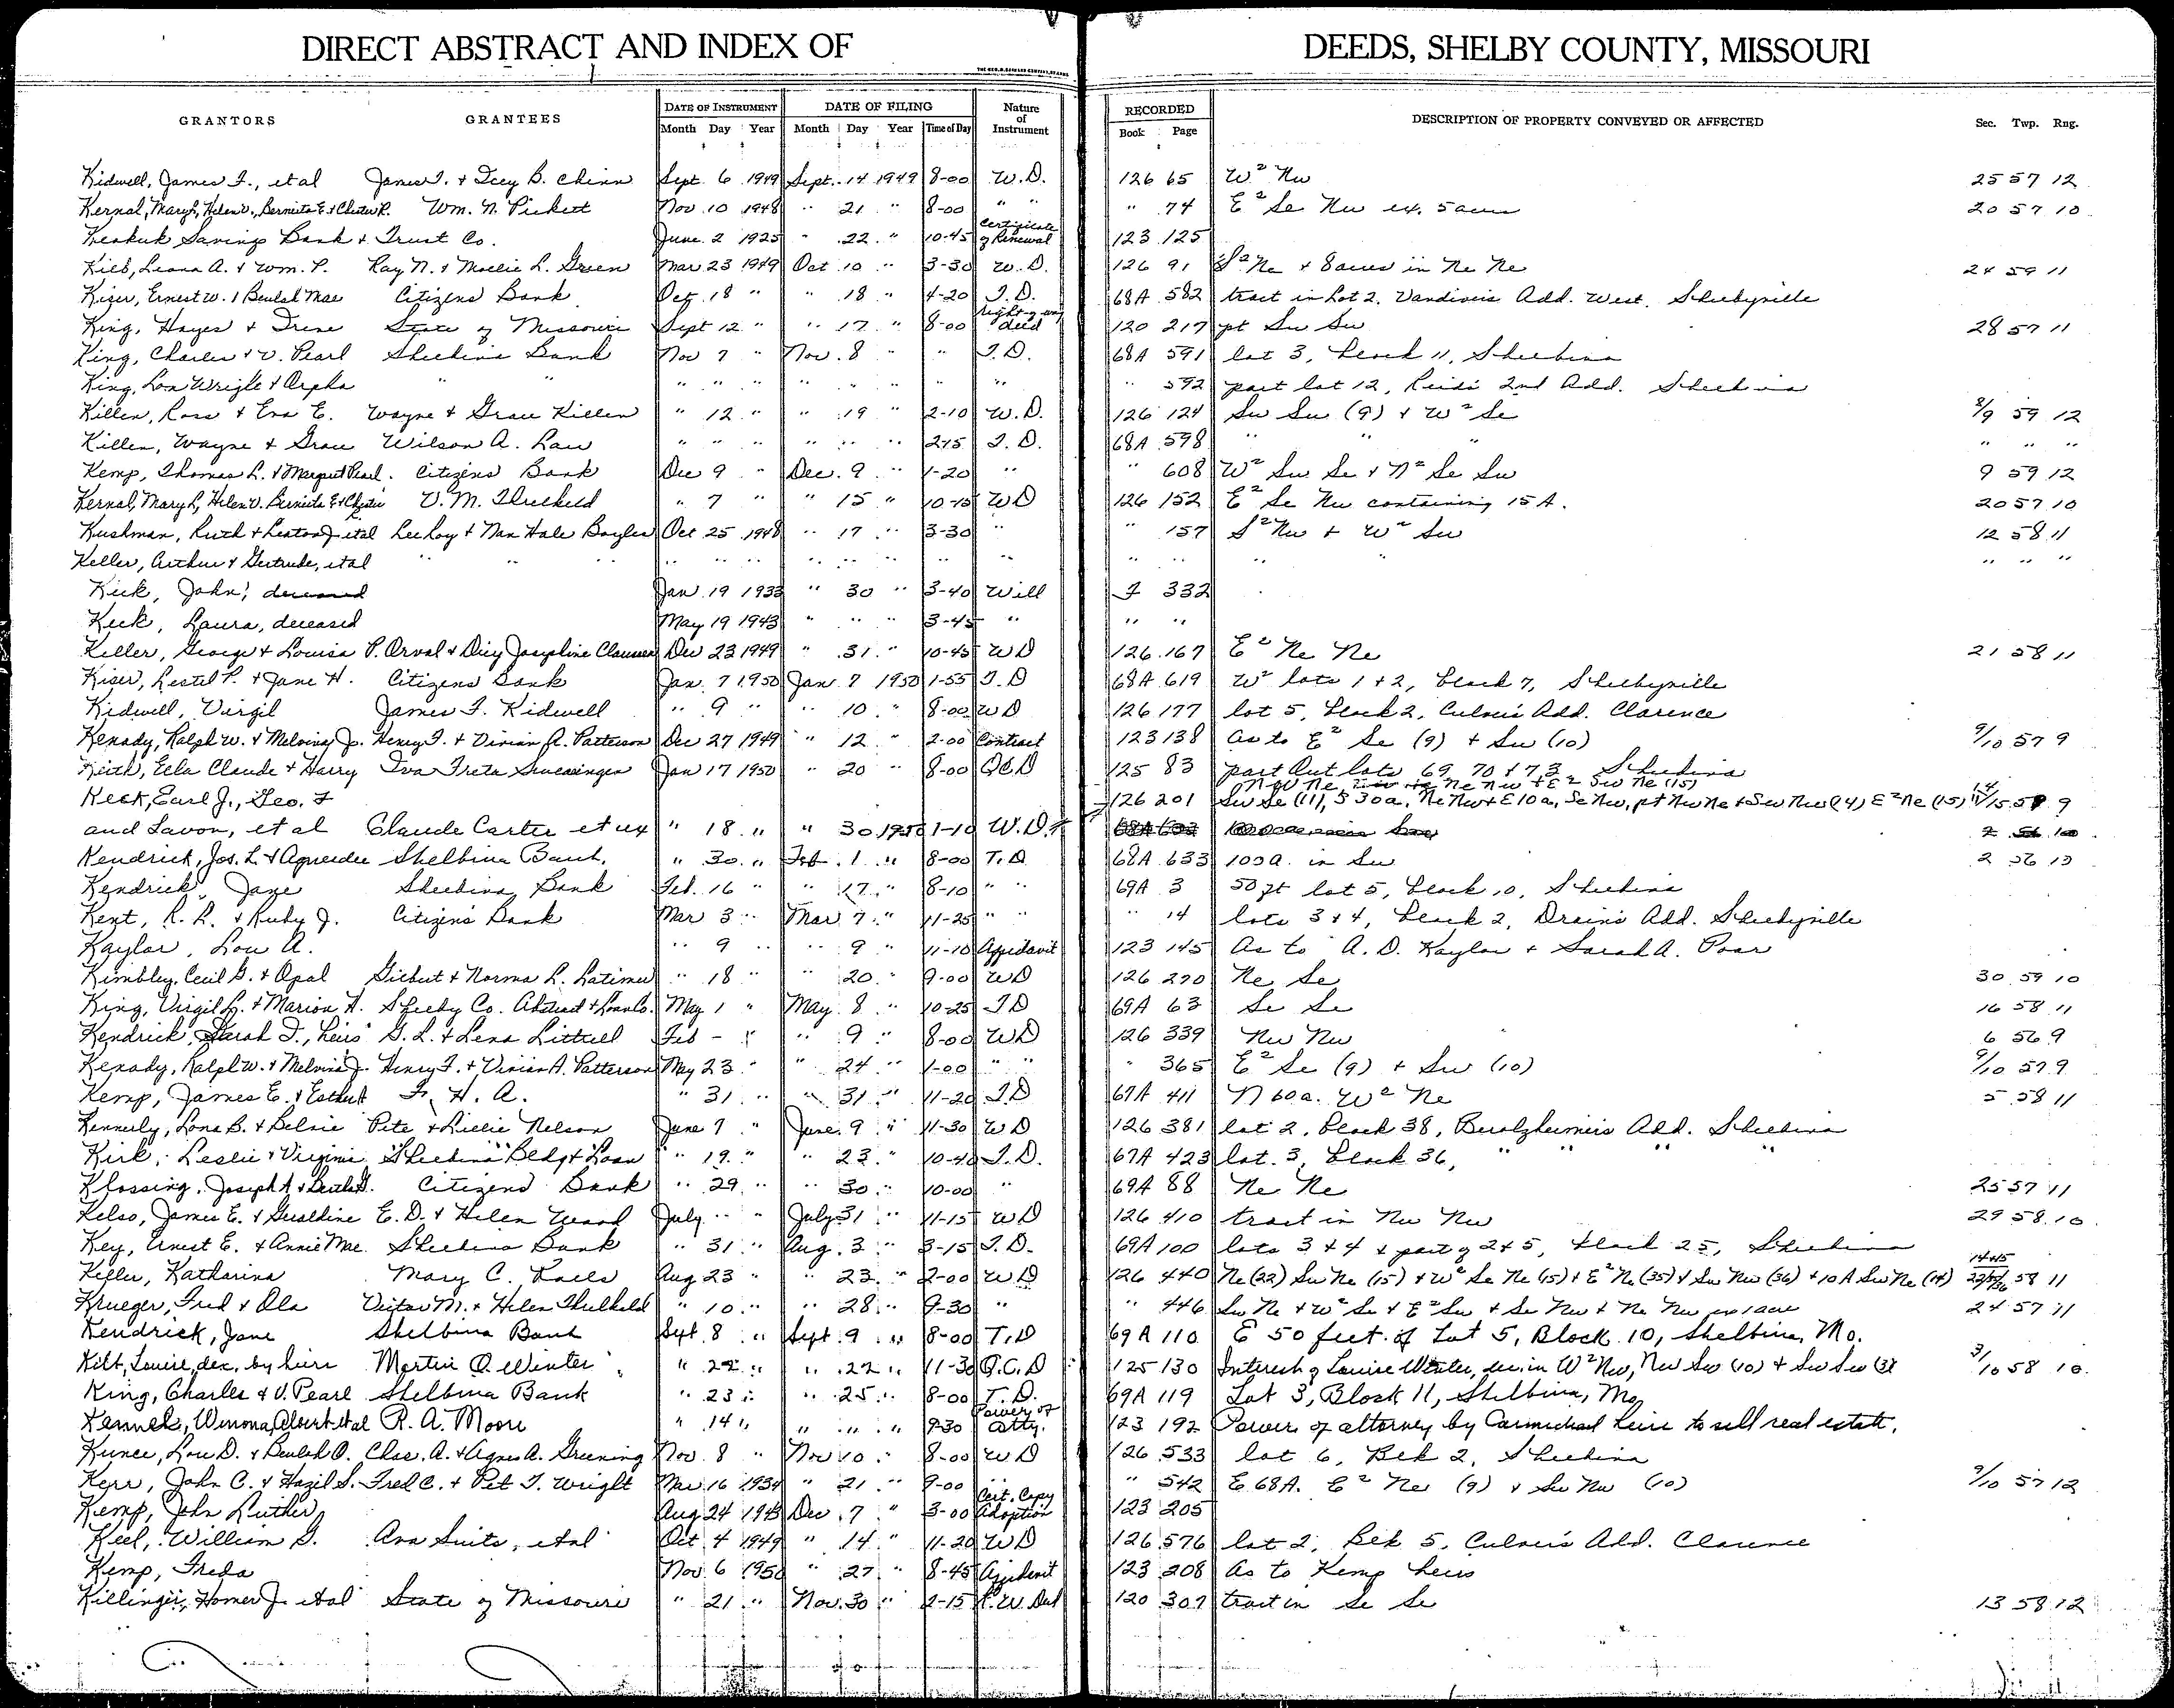 DIRECT ABSTRACT AND INDEX OF DEEDS, SHELBY COUNTY, MISSOURI
GRANTORS GRANTEES DATE OF INSTRUMENT DATE OF FILING Nature of Instrument RECORDED DESCRIPTION OF PROPERTY CONVEYED OR AFFECTED Sec. Twp. Rng.
Month Day Year Month Day Year Time of Day Book Page
Kidwell, James F., et al James T. + Icey B. Chinn Sept. 6 1949 Sept. 14 1949 8-00 W.D. 126 65 W² Nw 25 57 12
Kernal, Mary L, Helen V., Berneita E. + Chester R. Wm. N. Pickett Nov 10 1948 " 21 " 8-00 " " " 74 E² Se Nw ex. 5 acres 20 57 10
Keokuk Savings Bank + Trust Co. June 2 1925 " 22 " 10-45 Certificate of Renewal 123 125
Kilb, Leona A. + Wm. P. Ray N. + Mollie L. Green Mar 23 1949 Oct 10 " 3-30 W.D. 126 91 S² Ne + 8 acres in Ne Ne 24 59 11
Kiser, Ernest W. + Beulah Mae Citizens Bank Oct 18 " " 18 " 4-20 T.D. 68A 582 tract in Lot 2, Vandivers Add. West. Shelbyville
King, Hayes + Irene State of Missouri Sept 12 " " 17 " 8-00 Right of way deed 120 217 pt Sw Sw 28 57 11
King, Charles + V. Pearl Shelbina Bank Nov 7 " Nov. 8 " " T.D. 68A 591 lot 3, block 11, Shelbina
King, Lon Wright + Orpha " " " " " " " " " " " 592 part lot 12, Reids 2nd Add. Shelbina
Killen, Ross + Eva E. Wayne + Grace Killen " 12 " " 19 " 2-10 W.D. 126 124 Sw Sw (9) + W² Se 8/9 59 12
Killen, Wayne + Grace Wilson A. Law " " " " " " 2-15 T.D. 68A 598 " " " " " "
Kemp, Thomas L. + Margaret Pearl. Citizens Bank Dec 9 " Dec. 9 " 1-20 " " 608 W² Sw Se + N² Se Sw 9 59 12
Kernal, Mary L, Helen V. Berneita E + Chester R V. M. Threlkeld " 7 " " 15 " 10-15 WD 126 152 E² Se Nw containing 15 A. 20 57 10
Kushman, Ruth + Leaton J et al LeeRoy + Nan Hale Baylor Oct 25 1948 " 17 " 3-30 " " 157 S² Nw + W² Sw 12 58 11
Keller, Arthur + Gertrude, et al " " " " " " " " " " " " " " " " " "
Keck, John, deceased Jan 19 1933 " 30 " 3-40 Will I 332
Keck, Laura, deceased May 19 1943 " " " 3-45 " " "
Keller, George + Louisa P. Orval + Dicy Josephine Clausen Dec 23 1949 " 31 " 10-45 WD 126 167 E² Ne Ne 21 58 11
Kiser, Lestel P. + Jane H. Citizens Bank Jan. 7 1950 Jan 7 1950 1-55 T.D 68A 619 W² lots 1 + 2, block 7, Shelbyville
Kidwell, Virgil James F. Kidwell " 9 " " 10 " 8-00 WD 126 177 lot 5, block 2, Culver's Add. Clarence
Kenady, Ralph W. + Melvina J. Henry F. + Vivian A. Patterson Dec 27 1949 " 12 " 2-00 Contract 123 138 as to E² Se (9) + Sw (10) 9/10 57 9
Keith, Eela Claude + Harry Iva Freta Swearingen Jan 17 1950 " 20 " 8-00 QCD 125 83 part Out lots 69, 70 + 73 Shelbina
Keck, Earl J., Geo. F 126 201 Sw Se (11), S 30a, Ne Nw + E 10a, Se Nw, pt Nw Ne + Sw Nw (14) E² Ne (15)
and Lavon, et al Claude Carter et ux " 18 " " 30 1950 1-10 W.D.
Kendrick, Jos. L. + Agnes dec Shelbina Bank. " 30 " Feb. 1 " 8-00 T.D 68A 633 100a. in Sw 2 56 10
Kendrick, Jane Shelbina Bank Feb. 16 " " 17 " 8-10 " " 69A 3 50 ft lot 5, block 10, Shelbina
Kent, R. L. + Ruby J. Citizens Bank Mar 3 " Mar 7 " 11-25 " " " 14 lots 3 + 4, block 2, Drain's Add. Shelbyville
Kaylor, Lou A. " 9 " " 9 " 11-10 Affidavit 123 145 As to A. D. Kaylor + Sarah A. Poor
Kimbley, Cecil G. + Opal Gilbert + Norma L. Latimer " 18 " " 20 " 9-00 WD 126 270 Ne Se 30 59 10
King, Virgil L. + Marion H. Shelby Co. Abstract + Loan Co. May 1 " May 8 " 10-25 TD 69A 63 Se Se 16 58 11
Kendrick, Sarah F., heirs G. L. + Lena Littrell Feb - " " 9 " 8-00 WD 126 339 Nw Nw 6 56 9
Kenady, Ralph W. + Melvina J. Henry F. + Vivian A. Patterson May 23 " " 24 " 1-00 " " " 365 E² Se (9) + Sw (10) 9/10 57 9
Kemp, James E. + Esther A F. H. A. " 31 " " 31 " 11-20 T.D 67A 411 N 60 a. W² Ne 5 58 11
Kennerly, Lona B. + Delsie Pete + Lillie Nelson June 7 " June 9 " 11-30 WD 126 381 lot 2, block 38, Benlzheimers Add. Shelbina
Kirk, Leslie + Virginia Shelbina Bldg + Loan " 19 " " 23 " 10-40 T.D. 67A 423 lot 3, block 36, " " "
Klossing, Joseph A. + Beulah G. Citizens Bank " 29 " " 30 " 10-00 " 69A 88 Ne Ne 25 57 11
Kelso, James E. + Geraldine E. D. + Helen Ward July " " July 31 " 11-15 WD 126 410 tract in Nw Nw 29 58 10
Key, Ernest E. + Annie Mae. Shelbina Bank " 31 " Aug. 3 " 3-15 T.D. 69A 100 lots 3 + 4 + part of 2 + 5, block 25, Shelbina
Keller, Katharina Mary C. Ralls Aug 23 " " 23 " 2-00 WD 126 440 Ne (22) Sw Ne (15) + W² Se Ne (15) + E² Ne (35) + Sw Nw (36) + 10 A Sw Ne (14) 58 11
Krueger, Fred + Ola Victor M. + Helen Threlkeld " 10 " " 28 " 9-30 " " 446 Sw Ne + W² Se + E² Sw + Se Nw + Ne Nw ex 1 acre 24 57 11
Kendrick, Jane Shelbina Bank Sept. 8 " Sept. 9 " 8-00 T.D 69A 110 E 50 feet of Lot 5, Block 10, Shelbina, Mo.
Kilb, Louise, dec, by heirs Martin O. Winter " 22 " " 22 " 11-30 Q.C.D 125 130 Interest of Louise Winter, dec. in W² Nw, Nw Sw (10) + Sw Sw (3) 3/10 58 10
King, Charles + V. Pearl Shelbina Bank " 23 " " 25 " 8-00 T.D. 69A 119 Lot 3, Block 11, Shelbina, Mo
Kennel, Winona, Albert et al R. A. Moore " 14 " " " " 9-30 Power of atty. 123 192 Power of attorney by Carmichael heirs to sell real estate.
Kunce, Lou D. + Beulah O. Chas. A. + Agnes A. Greening Nov. 8 " Nov 10 " 8-00 WD 126 533 lot 6, Blk 2, Shelbina
Kerr, John C. + Hazel S. Fred C. + Pet T. Wright Mar 16 1934 " 21 " 9-00 " " 542 E 68A. E² Ne (9) + Sw Nw (10) 9/10 57 12
Kemp, John Luther Aug 24 1943 Dec. 7 " 3-00 Cert. Copy Adoption 123 205
Keel, William G. Ava Suits, et al Oct 4 1949 " 14 " 11-20 WD 126 576 lot 2, Blk 5, Culver's Add. Clarence
Kemp, Freda Nov. 6 1950 " 27 " 8-45 Affidavit 123 208 As to Kemp heirs
Killinger, Homer J. et al State of Missouri " 21 " Nov. 30 " 2-15 R.W. Ded 120 307 tract in Se Se 13 58 12